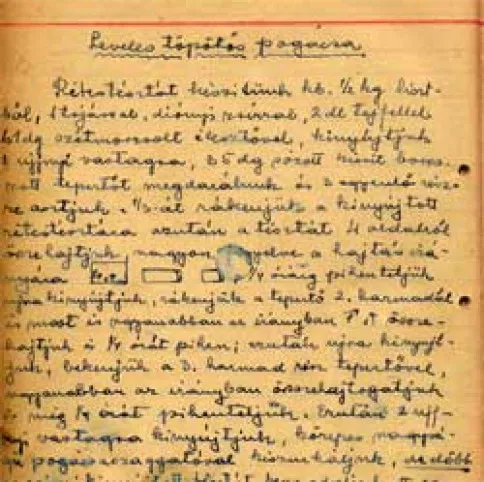 Leveles töpötős pogácsa
Rétestésztát készítünk kb. ½ kg liszt-
ből, 1 tojással, diónyi zsírral, 2 dl tejfellel
1 dg szétmorzsolt élesztővel, kinyujtjuk
1 ujjnyi vastagra, 35 dg sózott kissé
tepertőt megdarálunk és 3 egyenlő rész-
re osztjuk. ⅓-át rákenjük a kinyújtott
rétestésztára azután a tésztát 4 oldalról
összehajtjuk nagyon ügyelve a hajtás irá-
nyára ¼ óráig pihentetjük
újra kinyújtjuk, rákenjük a tepertő 2. harmadát
és most is ugyanabban az irányban össze-
hajtjuk és ¼ órát pihen; ezután ujra kinyujt-
juk, bekenjük a 3. harmad rész tepertővel,
ugyanabban az irányban összehajtogatjuk
és még ¼ órát pihentetjük. Ezután 2 ujj-
nyi vastagra kinyújtjuk, közepes nagysá-
gú pogácsaszaggatóval kiszurkáljuk, de előbb